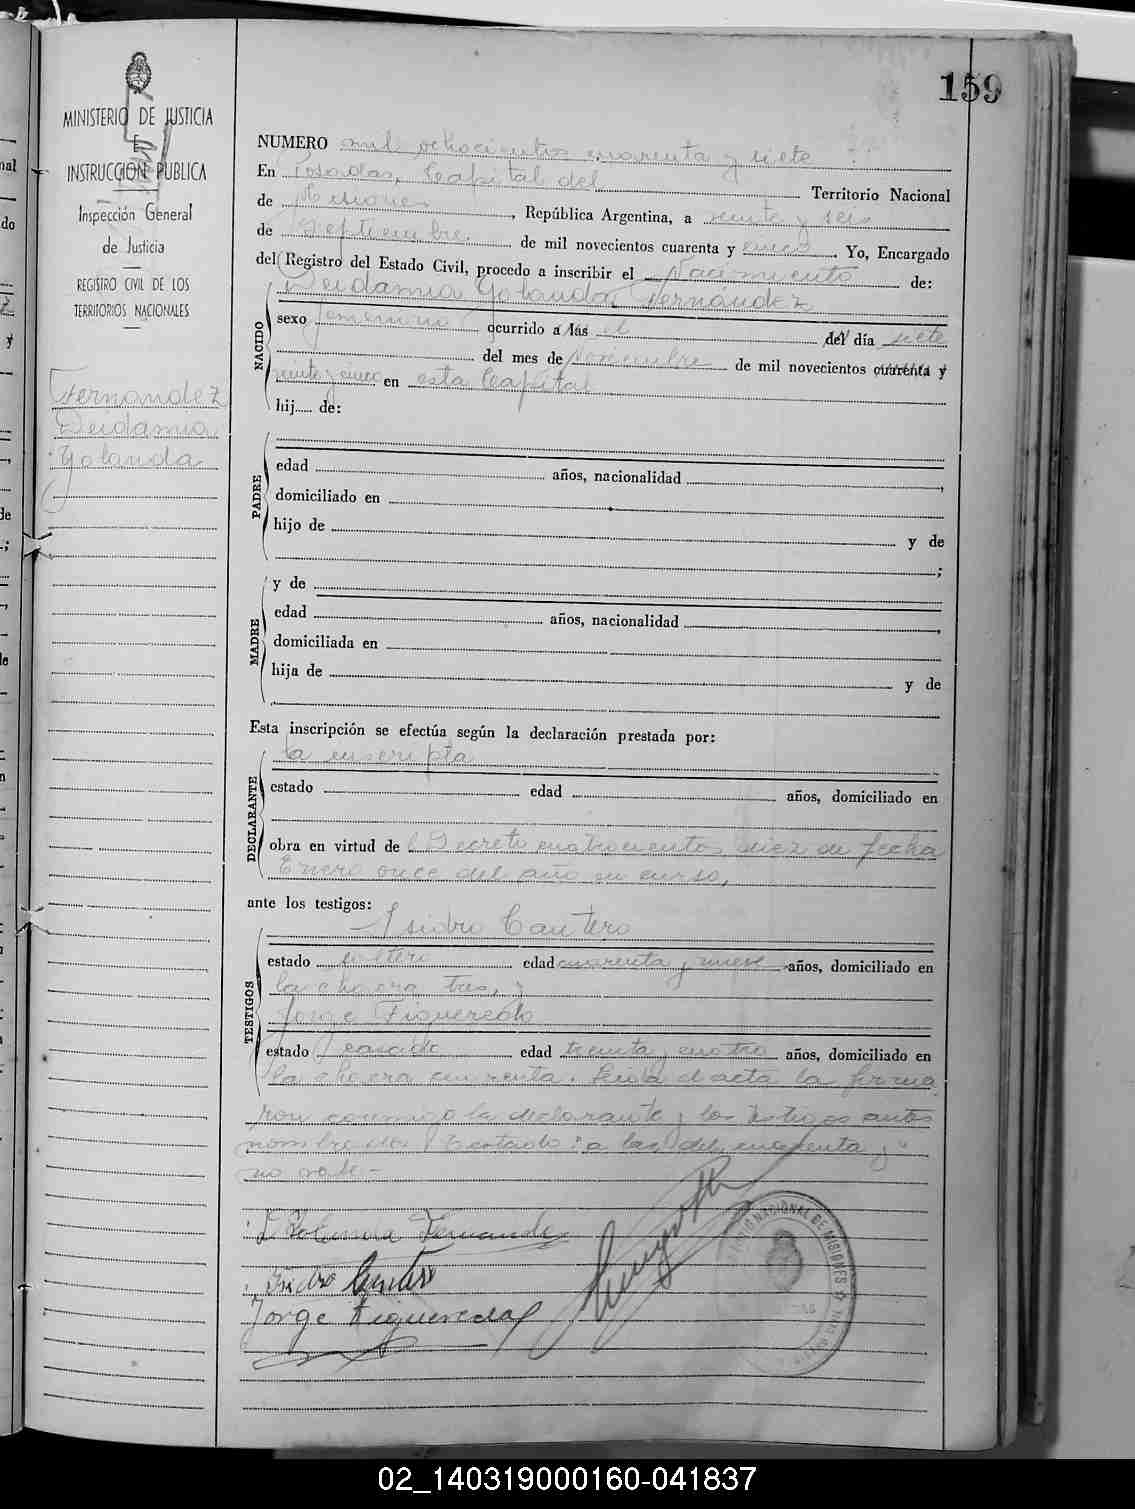 159
MINISTERIO DE JUSTICIA
E
INSTRUCCION PUBLICA
Inspección General
de Justicia
REGISTRO CIVIL DE LOS
TERRITORIOS NACIONALES
Fernandez
Deidamia
Yolanda
NUMERO mil ochocientos cuarenta y siete
En Posadas, Capital del Territorio Nacional
de Misiones, República Argentina, a veinte y seis
de Septiembre de mil novecientos cuarenta y cinco. Yo, Encargado
del Registro del Estado Civil, procedo a inscribir el Nacimiento de:
Deidamia Yolanda Fernández
NACIDO
sexo femenino ocurrido a las el del día siete
del mes de Noviembre de mil novecientos cuarenta y
veinte y cinco en esta Capital
hij..... de:
PADRE
edad años, nacionalidad ,
domiciliado en
hijo de y de
;
MADRE
y de
edad años, nacionalidad ,
domiciliada en
hija de y de
Esta inscripción se efectúa según la declaración prestada por:
DECLARANTE
la inscripta
estado edad años, domiciliado en
obra en virtud de l Decreto cuatrocientos diez de fecha
Enero once del año en curso,
ante los testigos:
TESTIGOS
Isidro Cantero
estado soltero edad cuarenta y nueve años, domiciliado en
la chacra tres, y
Jorge Figueredo
estado casado edad treinta y cuatro años, domiciliado en
la chacra cuarenta. Leida el acta la firma
ron conmigo la declarante y los testigos antes
nombrados. Testado: "a las, del, cuarenta y"
no vale.-
D. Yolanda Fernandez
Isidro Cantero
Jorge Figueredo
NACIONAL DE MISIONES
02_140319000160-041837